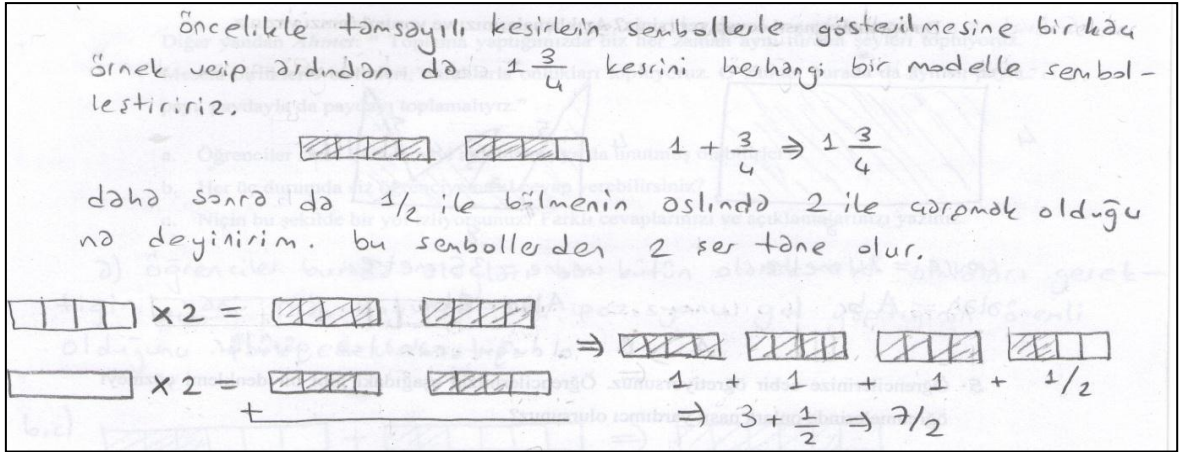 öncelikle tamsayılı kesirlerin sembollerle gösterilmesine birkaç
örnek verip ardından da 1 3/4 kesrini herhangi bir modelle sembol-
leştiririz.
1 + 3/4 ⇒ 1 3/4
daha sonra da 1/2 ile bölmenin aslında 2 ile çarpmak olduğu
na deyinirim. bu sembollerden 2 şer tane olur.
x2 =
x2 =
+
⇒
1 + 1 + 1 + 1/2
⇒ 3 + 1/2 ⇒ 7/2